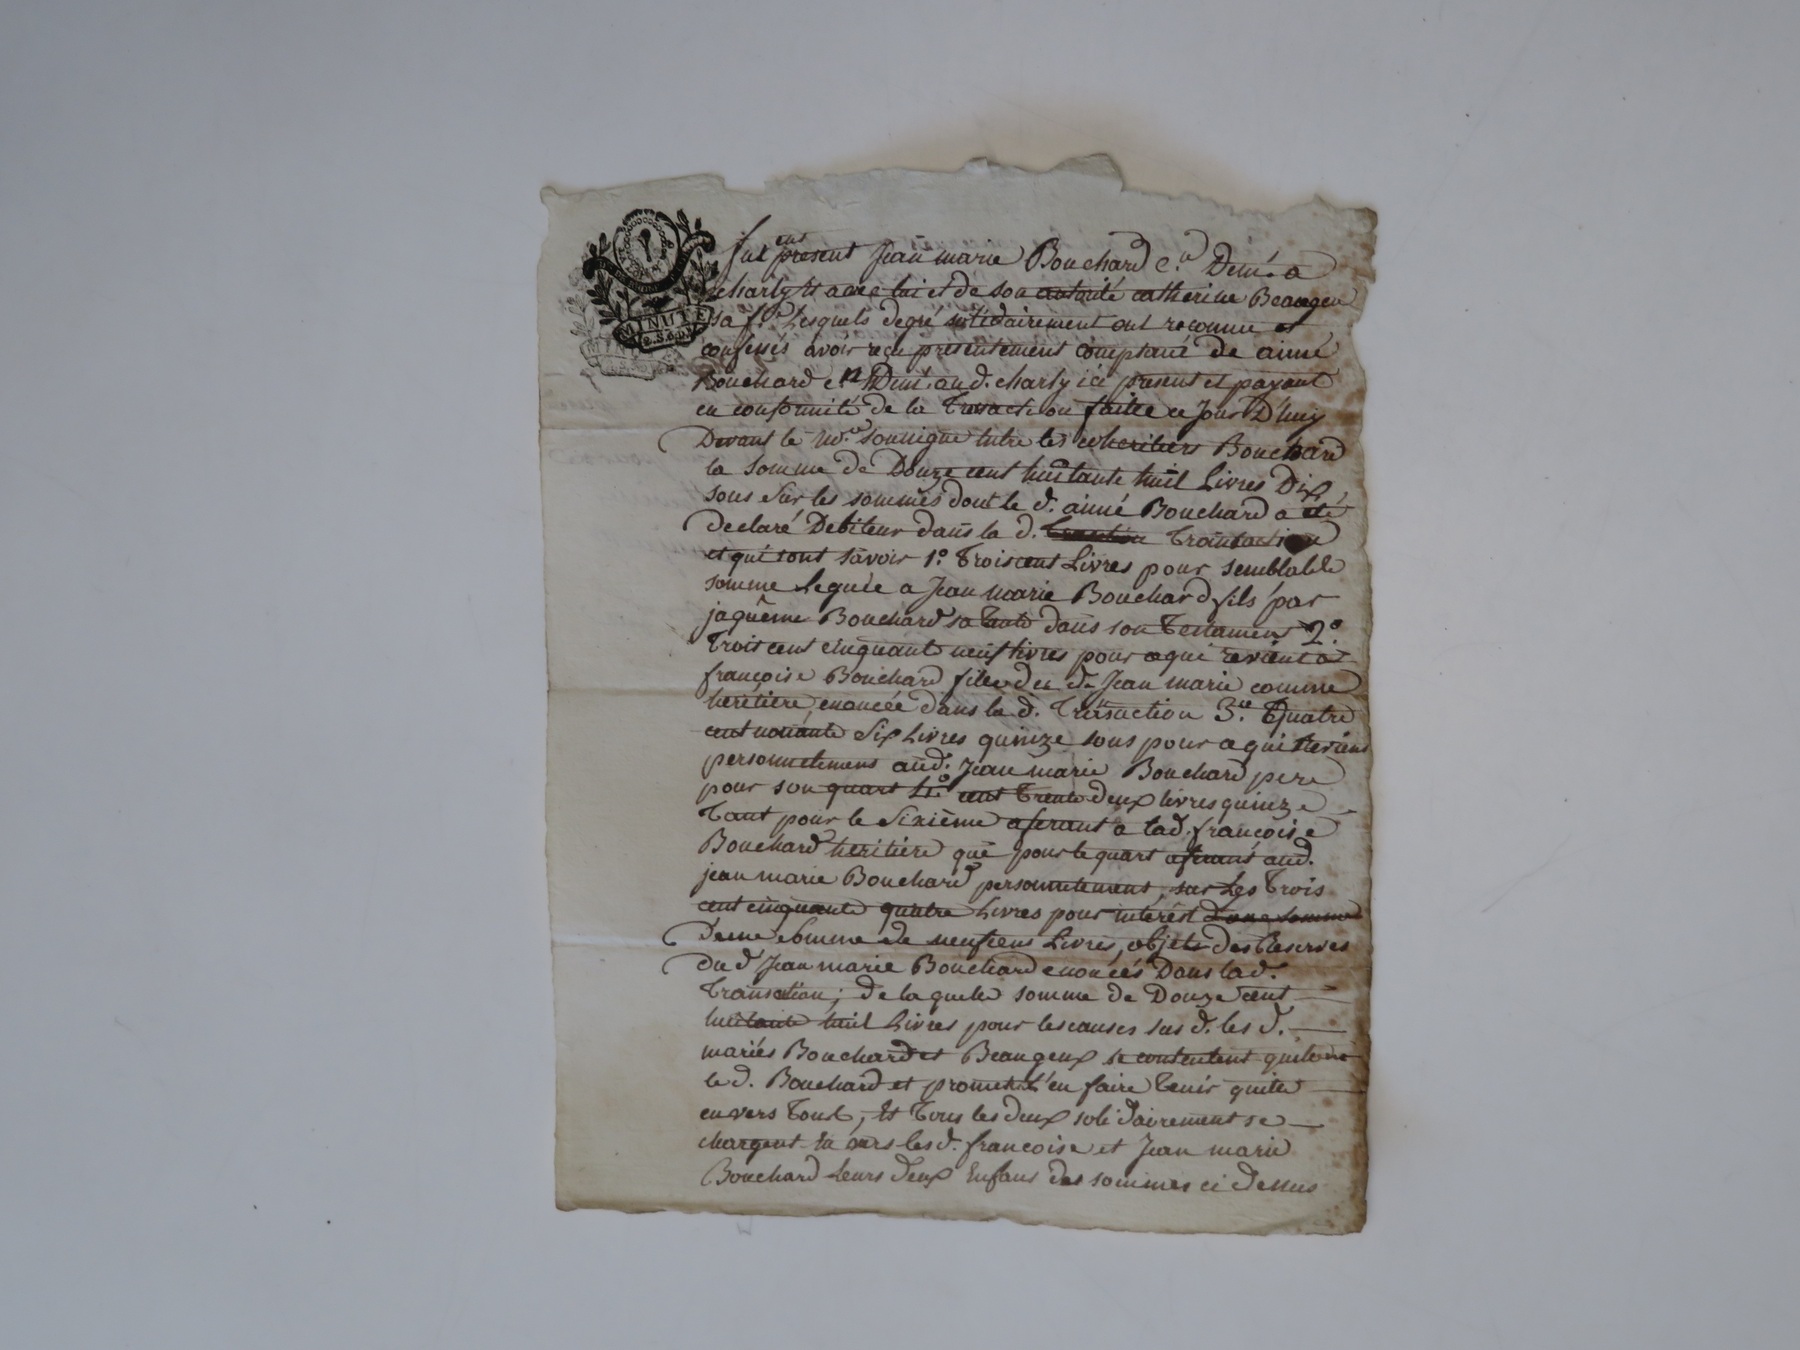 MINUTE
2.S.6.D.
furent present Jean marie Bouchard c.n Demt. a
charly et avec lui et de son autorité catherine Beaugeu
sa f.e Lesquels de gré solidairement ont reconnu et
confessés avoir reçu presentement comptant de aimé
Bouchard c.n Demt. aud. charly ici present et payant
en conformité de la Transaction faitte ce Jour D'huy
Devant le no.re soussigné entre les coheritiers Bouchard
la somme de Douze cent huitante huit Livres Dix
sous Sur les sommes dont le d. aimé Bouchard a été
declaré Debiteur dans la d. Transaction
et qui sont savoir 1.o Trois cent Livres pour semblable
somme leguée a Jean marie Bouchard fils par
jaquême Bouchard sa Tante dans son Testament 2.o
Trois cent cinquante neuf livres pour ce qui revient a
françoise Bouchard fille du d. Jean marie comme
heritiere, enoncée dans la d. Transaction 3.e Quatre
cent nonante Six Livres quinze sous pour ce qui revient
personnelement aud. Jean marie Bouchard pere
pour son quart 4.o cent Trente deux livres quinze
Tant pour le Sixième aferant a lad. françoise
Bouchard heritiere que pour le quart aferant aud.
jean marie Bouchard personnelement, sur Les Trois
cent cinquante quatre Livres pour interêt d'une somme
D'eune somme de neuf cent Livres, objets des Reserves
du d Jean marie Bouchard enoncés Dans lad.
Transation; de laquelle somme de Douze cent
huitante huit Livres pour les causes sus d. les d.
mariés Bouchard et Beaugeux se contentent quitent
le d. Bouchard et promet. L'en faire Tenir quitte
envers Tous, Et Tous les deux solidairement se
chargent envers lesd. francoise et Jean marie
Bouchard leurs deux Enfans des sommes ci dessus